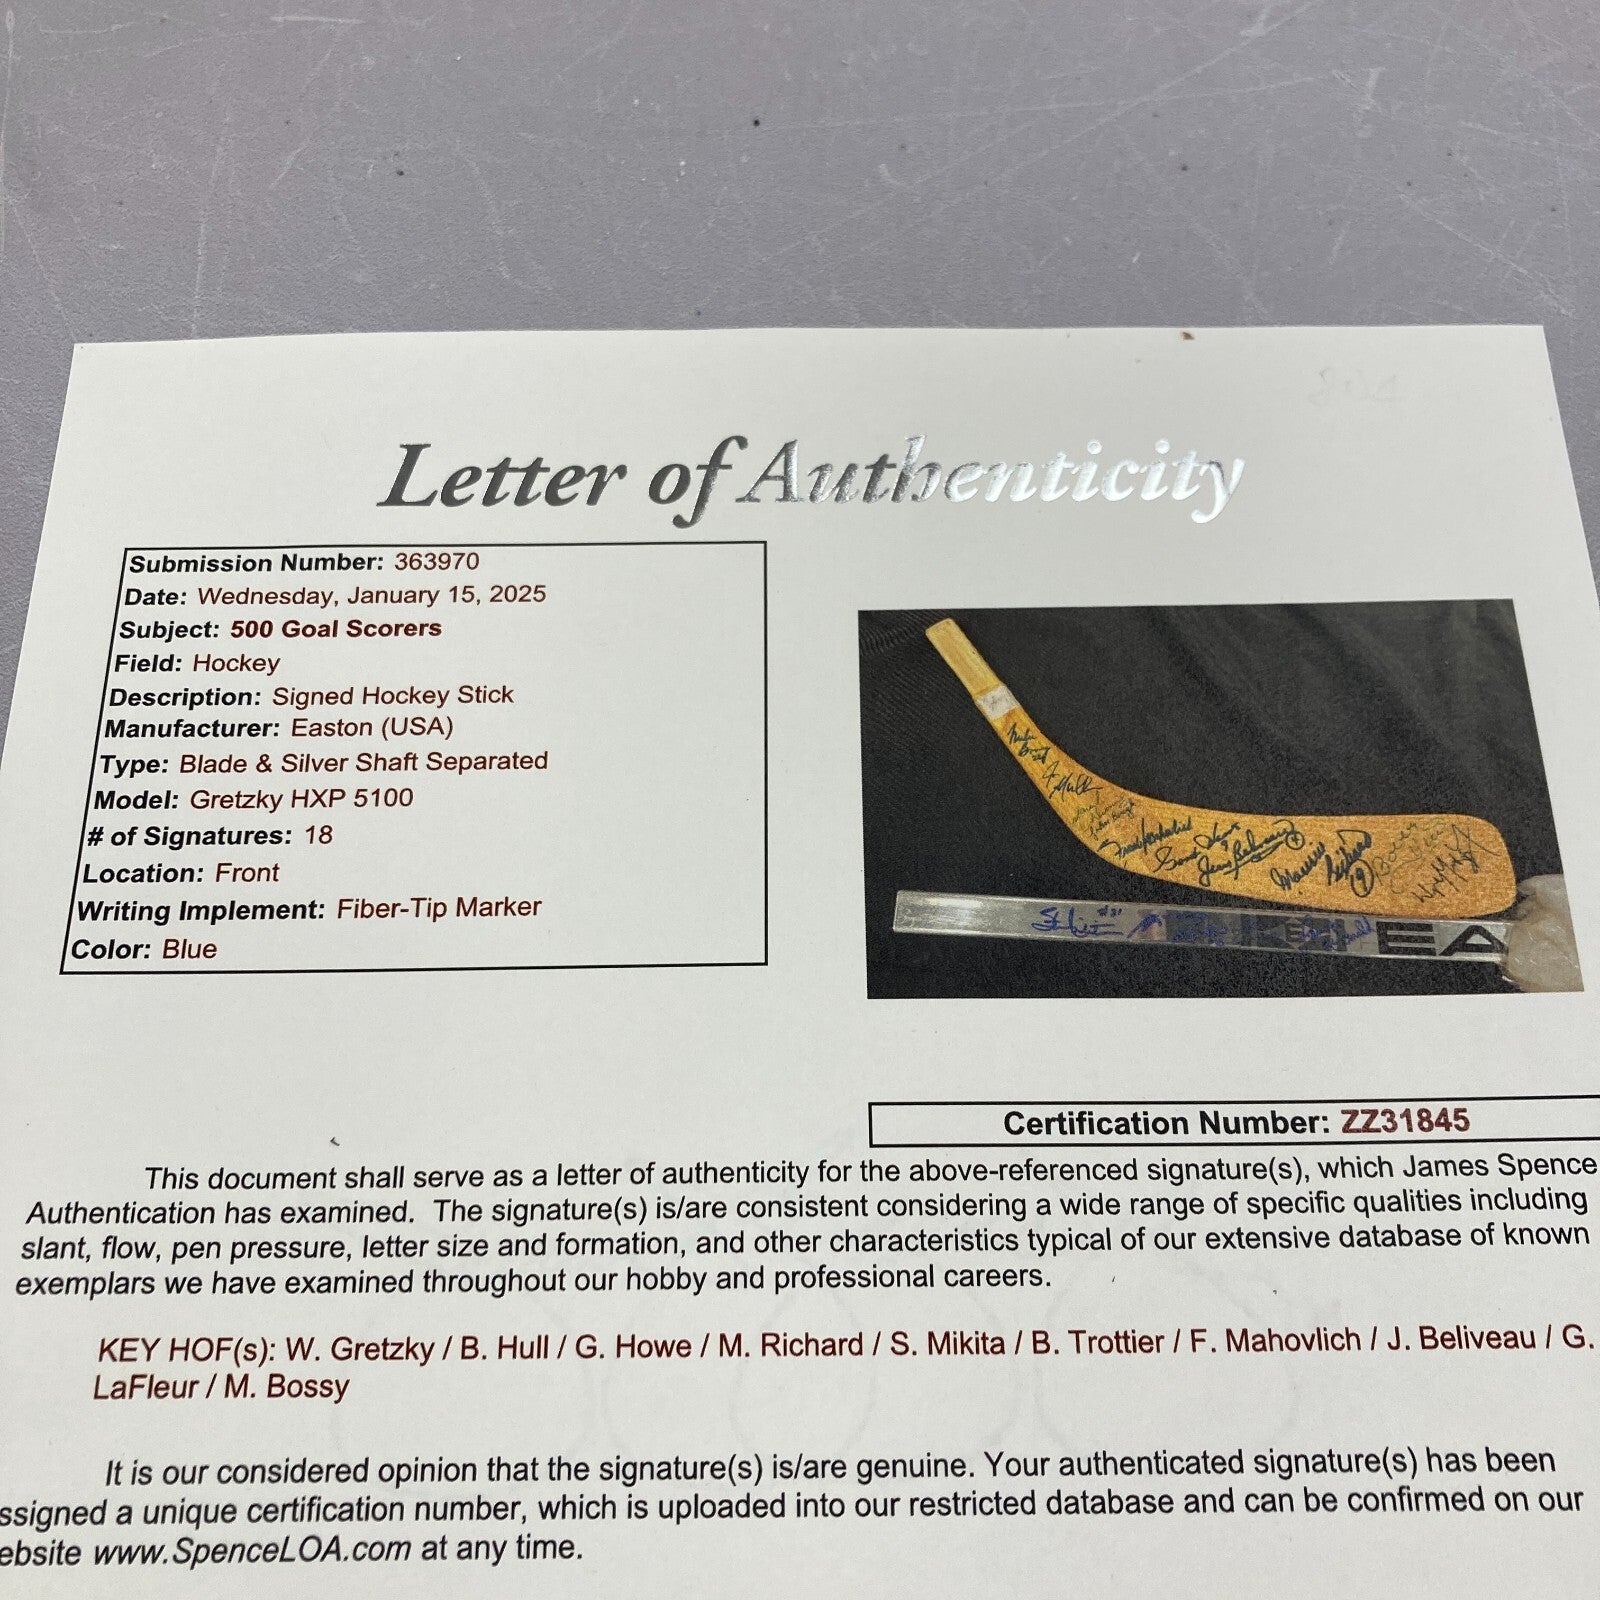 Letter of Authenticity
Submission Number: 363970
Date: Wednesday, January 15, 2025
Subject: 500 Goal Scorers
Field: Hockey
Description: Signed Hockey Stick
Manufacturer: Easton (USA)
Type: Blade & Silver Shaft Separated
Model: Gretzky HXP 5100
# of Signatures: 18
Location: Front
Writing Implement: Fiber-Tip Marker
Color: Blue
Frank Mahovlich
Gordie Howe 9
Jean Beliveau 4
Maurice Richard 9
EA
Certification Number: ZZ31845
This document shall serve as a letter of authenticity for the above-referenced signature(s), which James Spence
Authentication has examined. The signature(s) is/are consistent considering a wide range of specific qualities including
slant, flow, pen pressure, letter size and formation, and other characteristics typical of our extensive database of known
exemplars we have examined throughout our hobby and professional careers.
KEY HOF(s): W. Gretzky / B. Hull / G. Howe / M. Richard / S. Mikita / B. Trottier / F. Mahovlich / J. Beliveau / G.
LaFleur / M. Bossy
It is our considered opinion that the signature(s) is/are genuine. Your authenticated signature(s) has been
ssigned a unique certification number, which is uploaded into our restricted database and can be confirmed on our
ebsite www.SpenceLOA.com at any time.